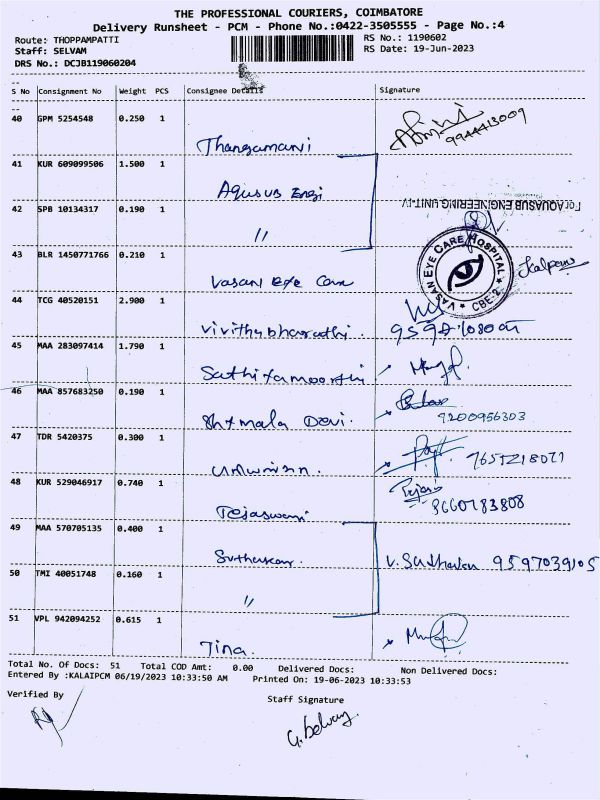 THE PROFESSIONAL COURIERS, COIMBATORE
Delivery Runsheet - PCM - Phone No.:0422-3505555 - Page No.:4
Route: THOPPAMPATTI
Staff: SELVAM
DRS No.: DCJB119060204
RS No.: 1190602
RS Date: 19-Jun-2023
S No Consignment No Weight PCS Consignee Details Signature
40 GPM 5254548 0.250 1
9944413009
Thangamani
41 KUR 609099506 1.500 1
Aqusub Engi
42 SPB 10134317 0.190 1
For AQUASUB ENGINEERING UNIT-IV
"
43 BLR 1450771766 0.210 1
VASAN EYE CARE HOSPITAL CBE-2.
Kalpana
Vasan Eye Care
44 TCG 40520151 2.900 1
Vivithabharathi.
45 MAA 283097414 1.790 1
Sathiyamoorthi
46 MAA 857683250 0.190 1
9200956303
Shymala Devi.
47 TDR 5420375 0.300 1
48 KUR 529046917 0.740 1
Tejaswani
49 MAA 570705135 0.400 1
Suthakar.
V. Suthakar 9597039105
50 TMI 40051748 0.160 1
"
51 VPL 942094252 0.615 1
Tina.
Total No. Of Docs: 51 Total COD Amt: 0.00 Delivered Docs: Non Delivered Docs:
Entered By :KALAIPCM 06/19/2023 10:33:50 AM Printed On: 19-06-2023 10:33:53
Verified By
Staff Signature
G. Selvam